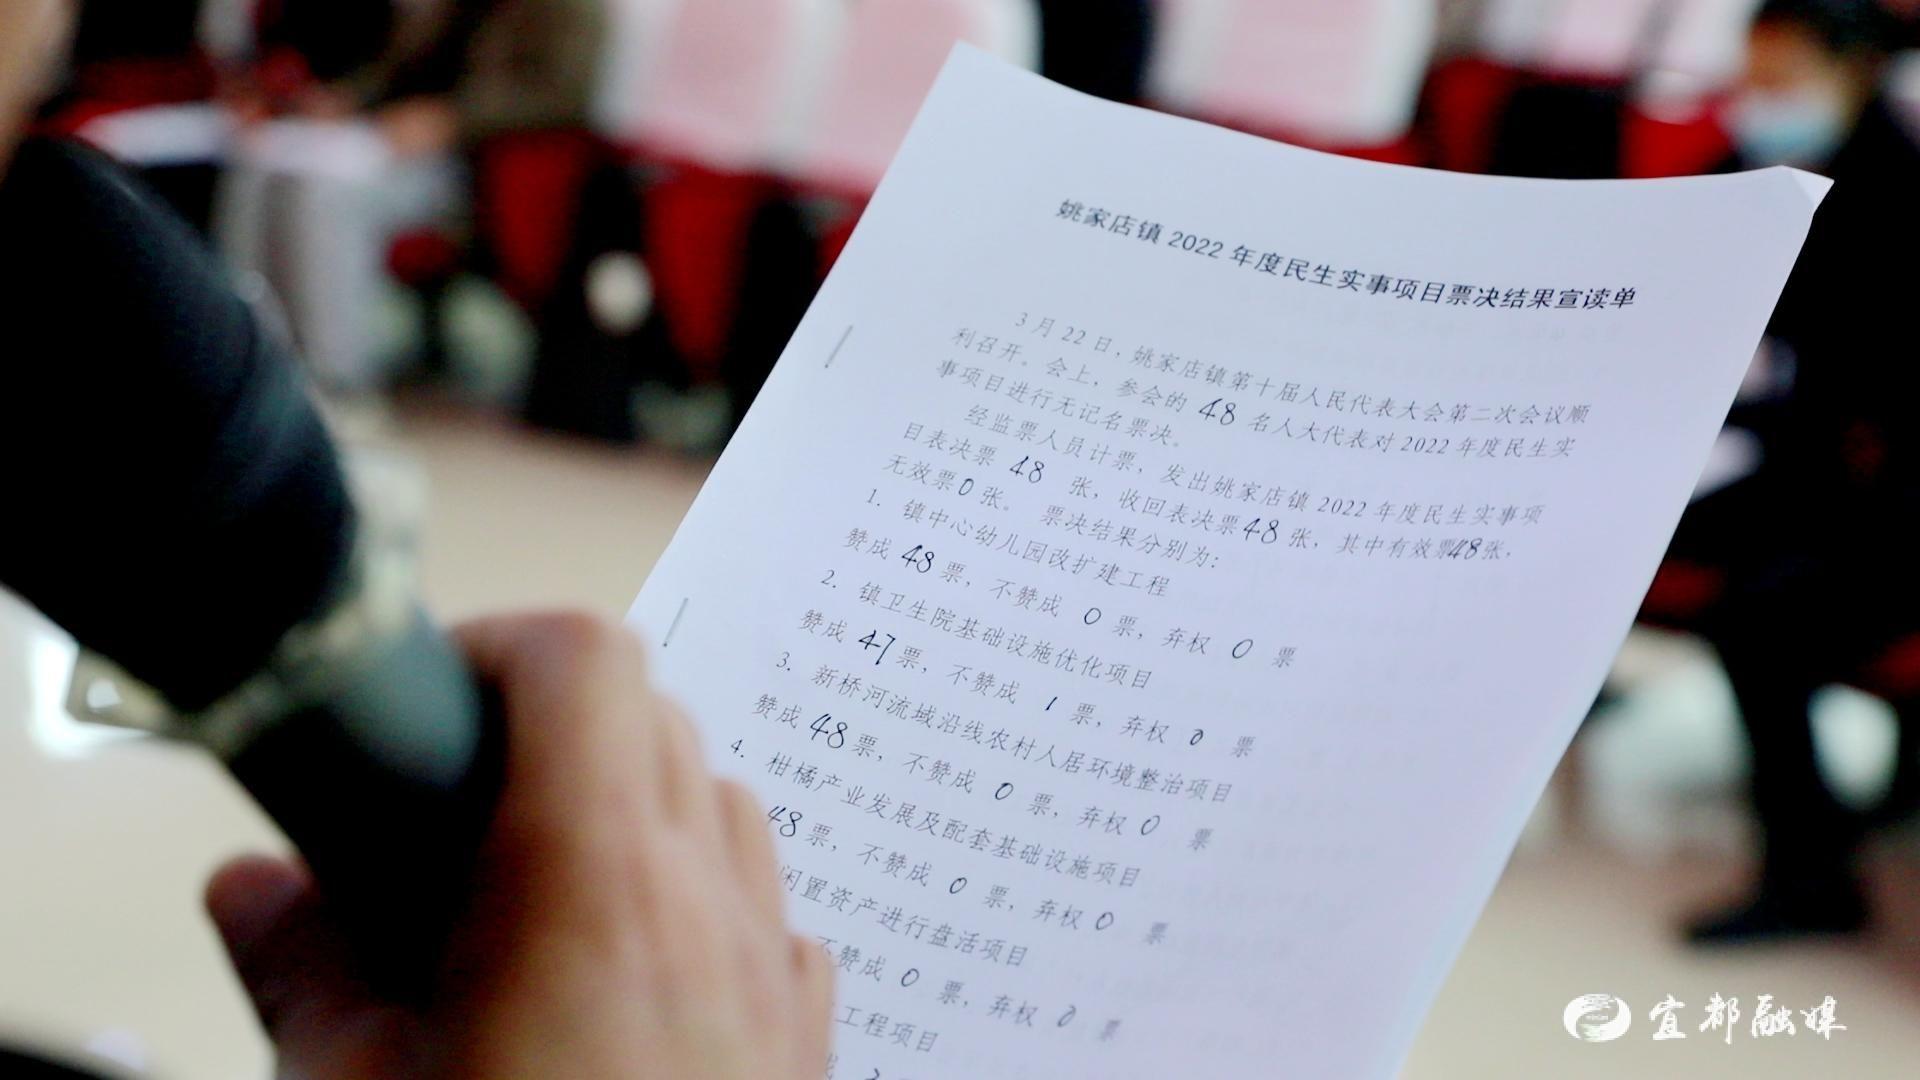 姚家店镇2022年度民生实事项目票决结果宣读单
3月22日，姚家店镇第十届人民代表大会第二次会议顺
利召开。会上，参会的48名人大代表对2022年度民生实
事项目进行无记名票决。
经监票人员计票，发出姚家店镇2022年度民生实事项
目表决票48张，收回表决票48张，其中有效票48张，
无效票0张。票决结果分别为：
1. 镇中心幼儿园改扩建工程
赞成48票，不赞成0票，弃权0票
2. 镇卫生院基础设施优化项目
赞成47票，不赞成1票，弃权0票
3. 新桥河流域沿线农村人居环境整治项目
赞成48票，不赞成0票，弃权0票
4. 柑橘产业发展及配套基础设施项目
48票，不赞成0票，弃权0票
闲置资产进行盘活项目
不赞成0票，弃权0票
工程项目
宜都融媒